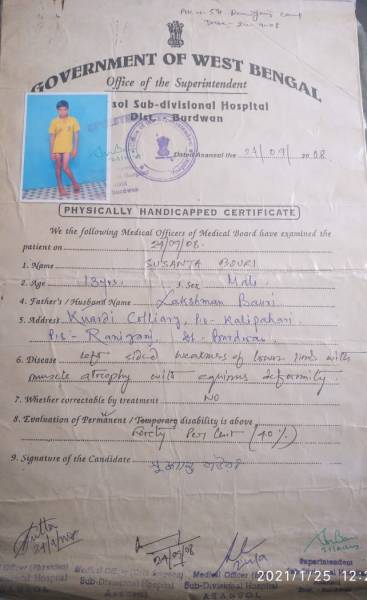 GOVERNMENT OF WEST BENGAL
Office of the Superintendent
sol Sub-divisional Hospital
Dist. - Burdwan
Dated Asansol the 24/09/ 2008
PHYSICALLY HANDICAPPED CERTIFICATE
We the following Medical Officers of Medical Board have examined the
patient on 24/09/08.
1. Name SUSANTA BOURI
2. Age 13 yrs. 3. Sex Male
4. Father's / Husband Name Lakshman Bauri
5. Address Kuardi Colliary, P.O- Kalipahari
P.S- Raniganj, Dt- Burdwan
6. Disease left sided weakness of lower limb with
muscle atrophy with equinus deformity.
7. Whether correctable by treatment NO
8. Evaluation of Permanent / Temporary disability is above
Forty Per Cent (40%)
9. Signature of the Candidate
24/09/08
Superintendent
Sub-Divisional Hospital
ASANSOL
2021/1/25 12:2